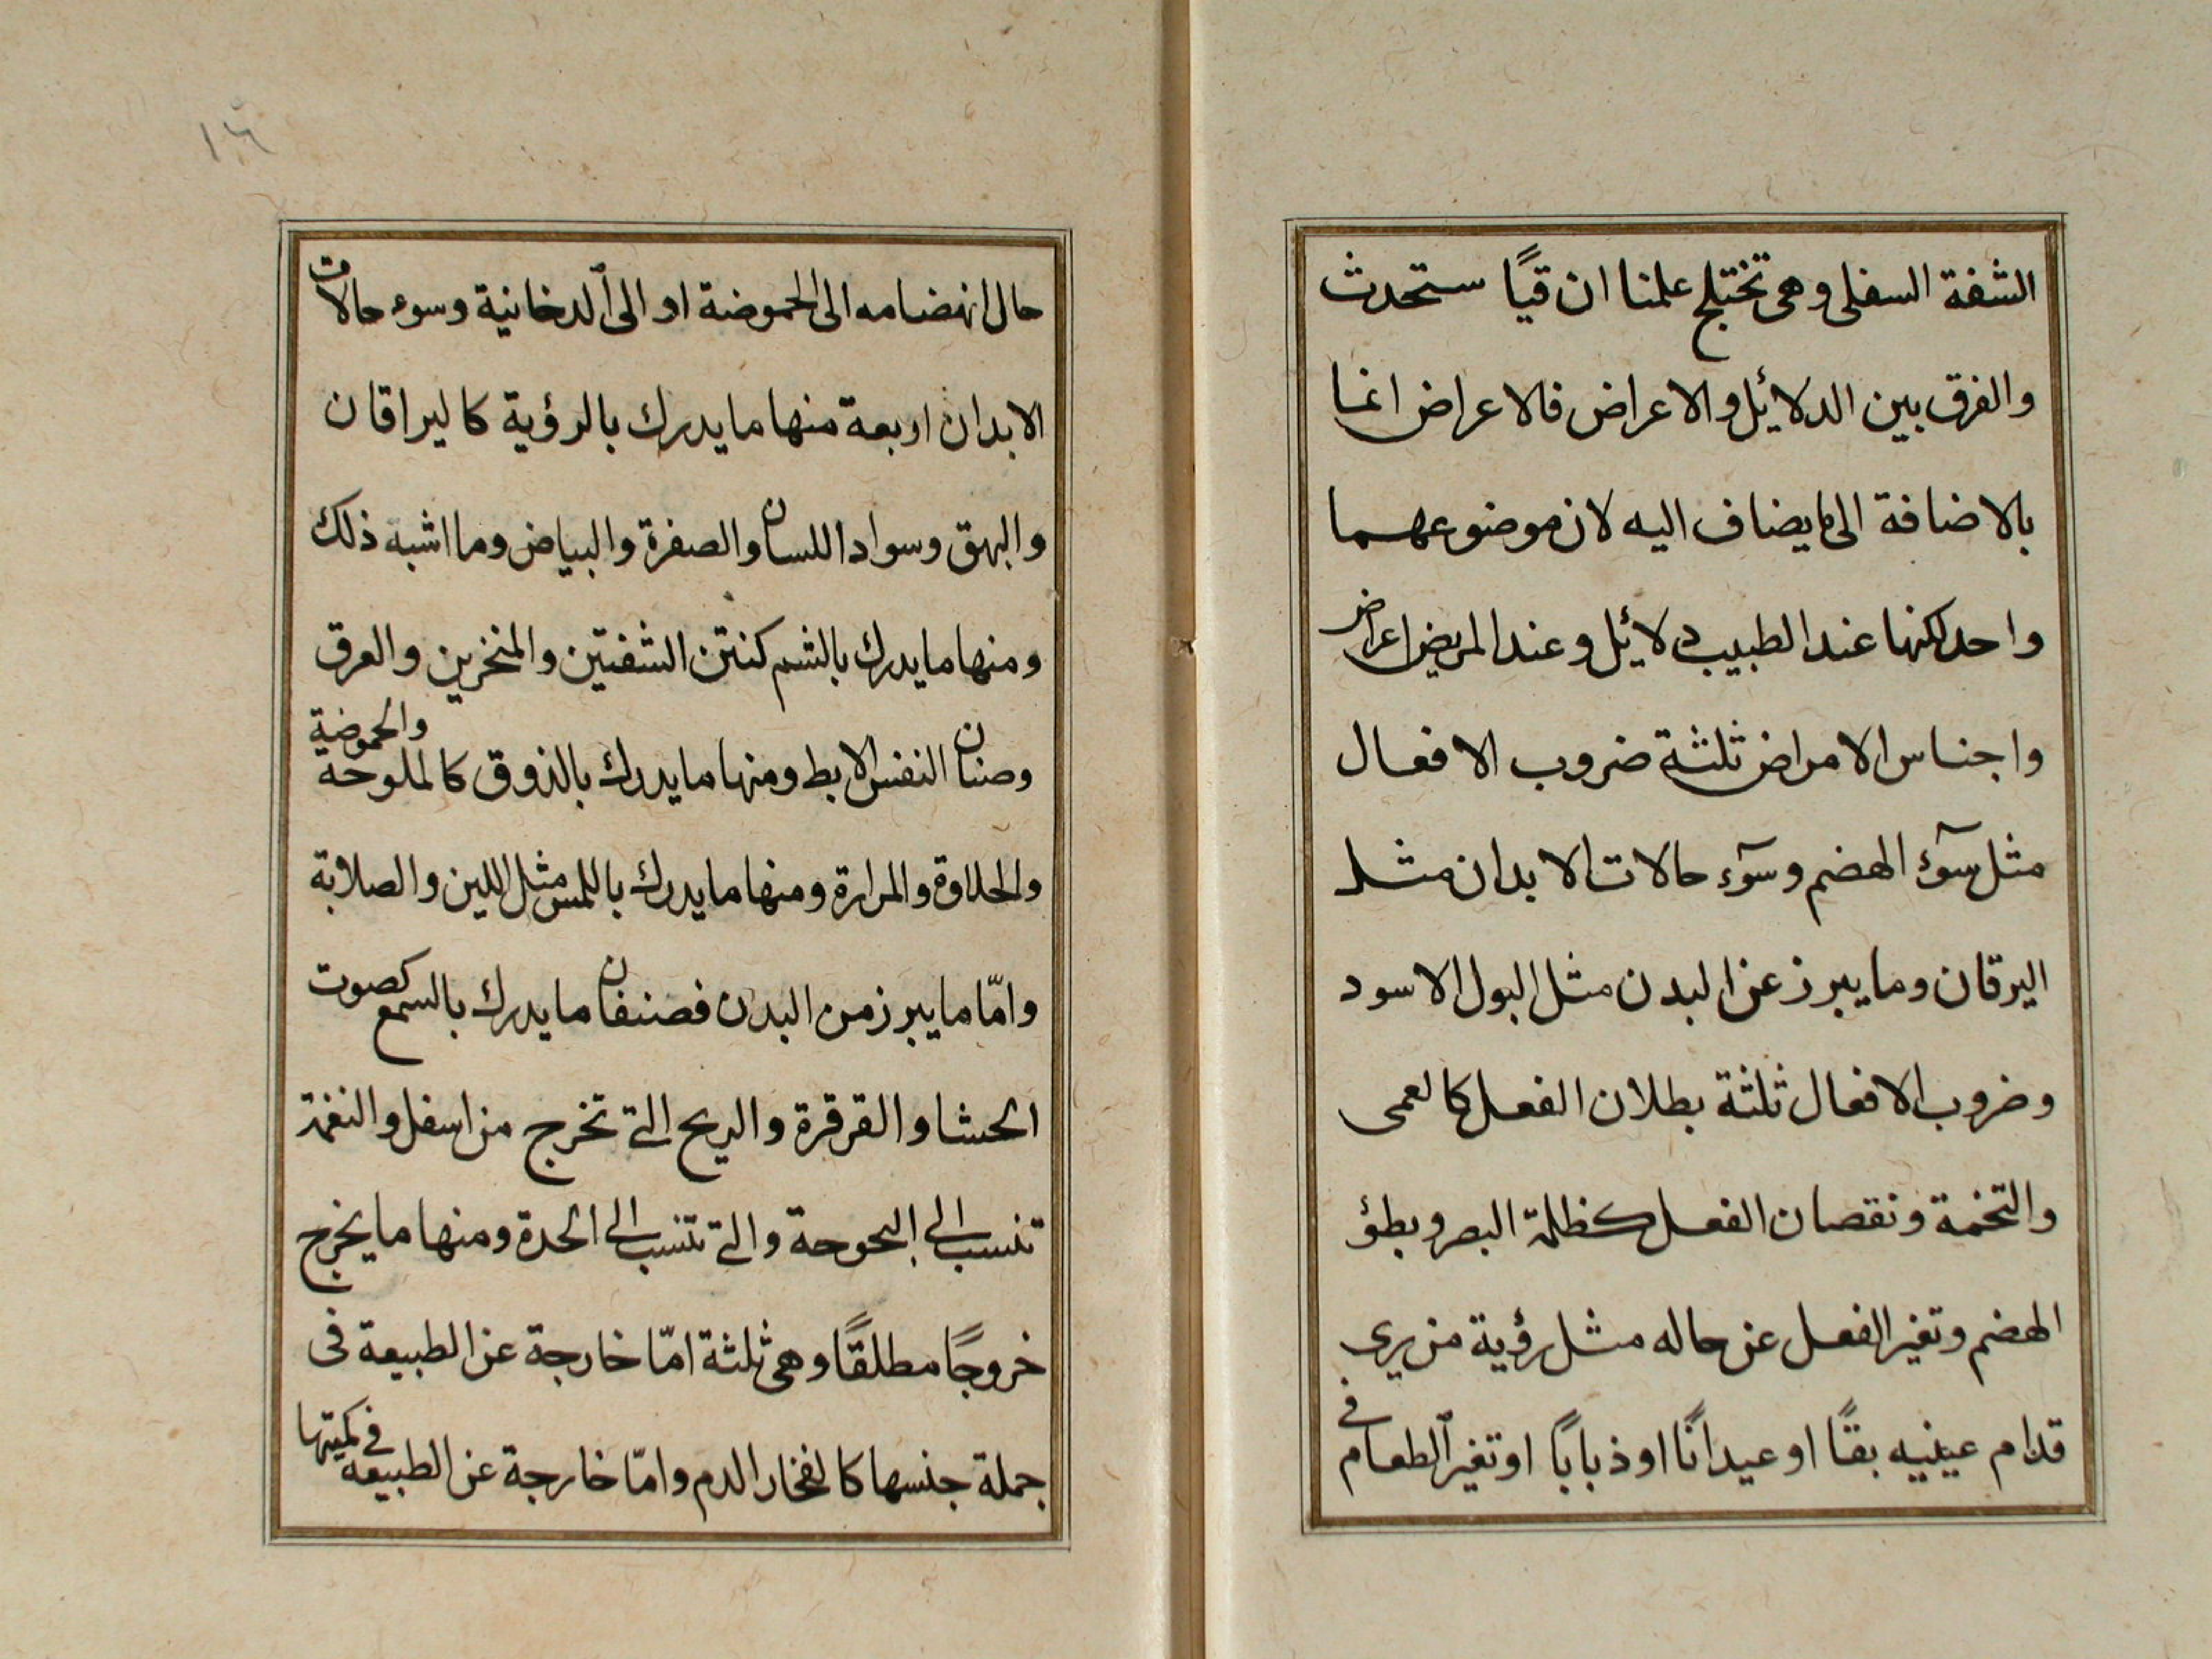 الشفة السفلى وهى تختلج علمنا ان قيًا ستحدث
والفرق بين الدلايئل والاعراض فالاعراض انما
بالاضافة الى ما يضاف اليه لان موضوعهما
واحد لكنها عند الطبيب دلايئل وعند المريض اعراض
واجناس الامراض ثلثة ضروب الافعال
مثل سوٓء الهضم وسوٓء حالات الابدان مثل
اليرقان وما يبرز عن البدن مثل البول الاسود
وضروب الافعال ثلثة بطلان الفعل كالعمى
والتخمة ونقصان الفعل كظلمة البصر وبطؤ
الهضم وتغير الفعل عن حاله مثل رؤية من يرى
قدام عينيه بقًا او عيدانًا او ذبابًا او تغير الطعام فى
١٦
حال انهضامه الى الحموضة او الى الدخانية وسوء حالات
الابدان اربعة منها ما يدرك بالرؤية كاليراقان
والبهق وسواد اللسان والصفرة والبياض وما اشبه ذلك
ومنها ما يدرك بالشم كنتن الشفتين والمنخرين والعرق
وصنان النفس الابط ومنها ما يدرك بالذوق كالملوحة والحموضة
والحلاوة والمرارة ومنها ما يدرك باللمس مثل اللين والصلابة
وامّا ما يبرز من البدن فصنفان ما يدرك بالسمع كصوت
الحشا والقرقرة والريح التى تخرج من اسفل والنغمة
تنسب الى البحوحة والتى تنسب الى الحدة ومنها ما يخرج
خروجًا مطلقًا وهى ثلثة امّا خارجة عن الطبيعة فى
جملة جنسها كانفخار الدم وامّا خارجة عن الطبيعة فى كميتها